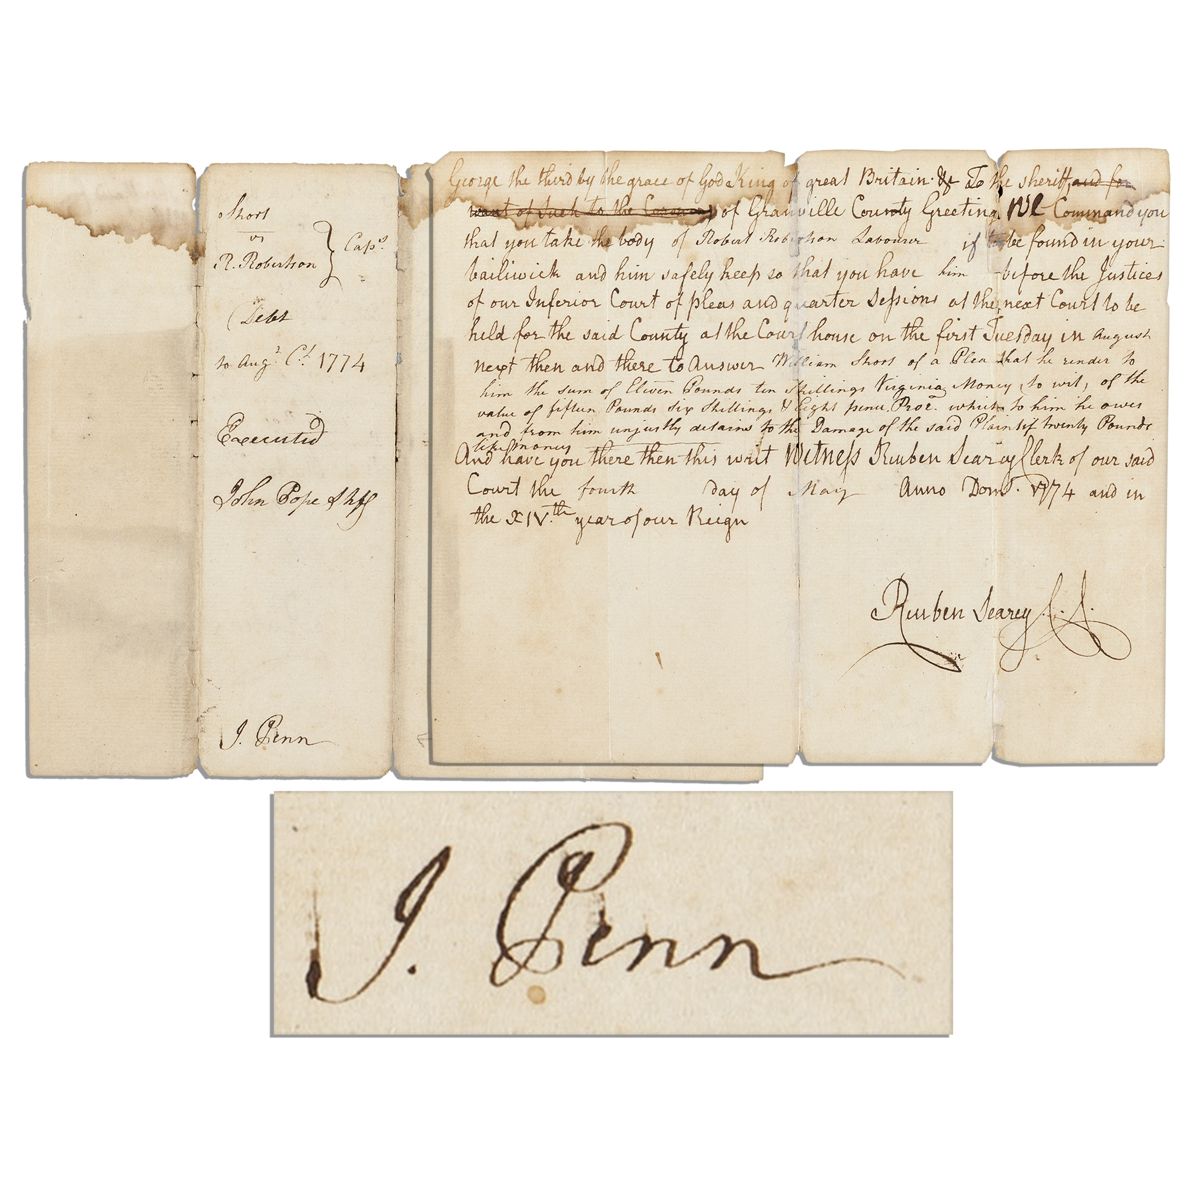 Short
vs
R. Robertson } Caps.
Debt
to Augt. Ct. 1774
Executed
John Pope Shff
J. Penn
George the third by the grace of God King of great Britain &c To the sheriff and for
want of such to the Coroner of Granville County Greeting We Command you
that you take the body of Robert Robertson Labourer if to be found in your
bailiwick and him safely keep so that you have him before the Justices
of our Inferior Court of pleas and quarter Sessions at the next Court to be
held for the said County at the Court house on the first Tuesday in August
next then and there to Answer William Short of a Plea that he render to
him the sum of Eleven Pounds ten Shillings Virginia Money, to wit, of the
value of fifteen Pounds six shillings & Eight pence Proc. which to him he owes
and from him unjustly detains to the Damage of the said Plaintif twenty Pounds
like money
And have you there then this writ Witness Reuben Searcy Clerk of our said
Court the fourth day of May Anno Dom. 1774 and in
the XIV.th year of our Reign
Reuben Searcy
J. Penn